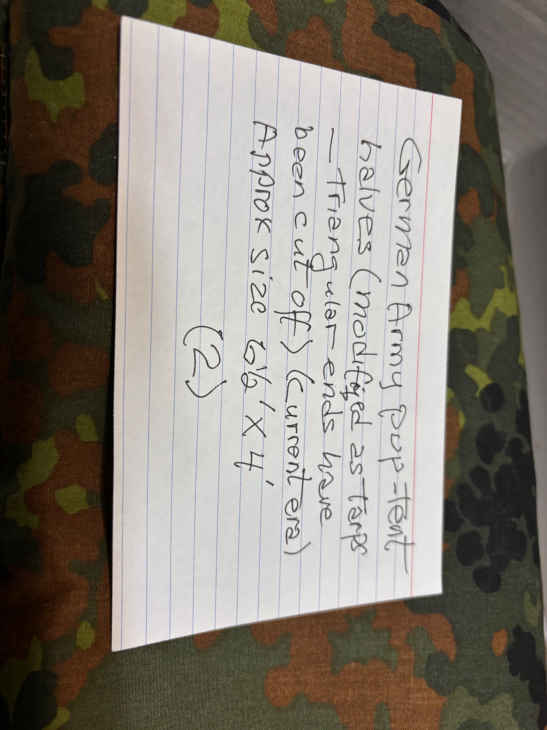 German Army pup-tent
halves (modified as tarps
- triangular ends have
been cut off) (current era)
Approx size 6½' x 4'
(2)